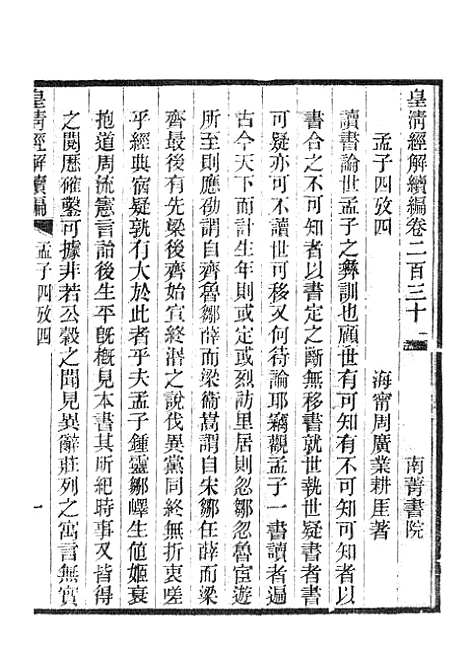 皇清經解續編卷二百三十一
南菁書院
孟子四攷四
海甯周廣業耕厓著
讀書論世孟子之彝訓也顧世有可知有不可知可知者以
書合之不可知者以書定之斷無移書就世執世疑書者書
可疑亦可不讀世可移又何待論耶竊觀孟子一書讀者遍
古今天下而計生年則或定或烈訪里居則忽鄒忽魯宦遊
所至則應劭謂自齊魯鄒薛而梁衞嵩謂自宋鄒任薛而梁
齊最後有先梁後齊始宣終湣之說伐異黨同終無折衷嗟
乎經典宿疑孰有大於此者乎夫孟子鍾靈鄒嶧生値姬衰
抱道周流憲言詒後生平旣槪見本書其所紀時事又皆得
之閱歷確鑿可據非若公穀之聞見異辭莊列之寓言無實
皇清經解續編
孟子四攷四
一